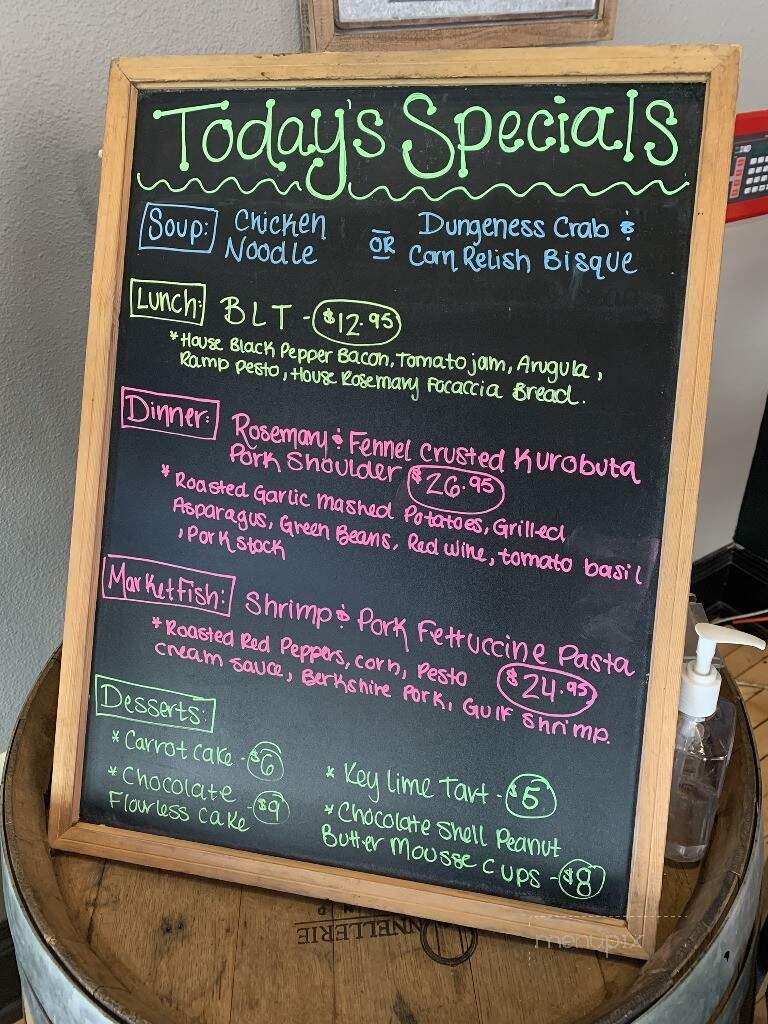 Today's Specials
Soup: Chicken Noodle OR Dungeness Crab & Corn Relish Bisque
Lunch: BLT - $12.95
*House Black Pepper Bacon, Tomato jam, Arugula,
Ramp pesto, House Rosemary Focaccia Bread.
Dinner: Rosemary & Fennel crusted Kurobuta
Pork Shoulder $26.95
*Roasted Garlic Mashed Potatoes, Grilled
Asparagus, Green Beans, Red wine, tomato basil
, Pork stock
Marketfish: Shrimp & Pork Fettuccine Pasta
*Roasted Red Peppers, corn, Pesto $24.95
cream sauce, Berkshire Pork, Gulf Shrimp.
Desserts:
*Carrot cake - $6
*Chocolate
Flourless cake - $9
*Key lime Tart - $5
*Chocolate Shell Peanut
Butter Mousse cups - $8
NNELLERIE
menupix